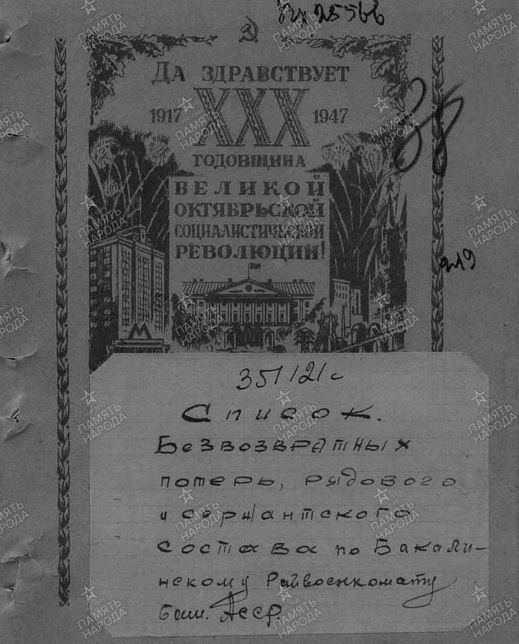 Да здравствует
1917 XXX 1947
годовщина
Великой
Октябрьской
социалистической
революции!
М
38
219
351/21с
Список.
Безвозвратных
потерь, рядового
и сержантского
состава по Бакали-
нскому Райвоенкомату
Баш. АССР.
ПАМЯТЬ
НАРОДА